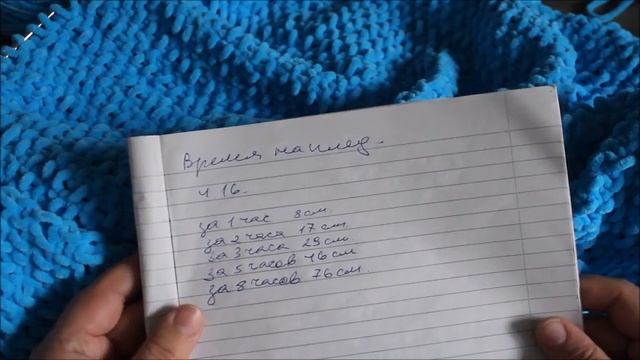 Время на плед.
ч 16.
за 1 час 8 см.
за 2 часа 17 см
за 3 часа 29 см.
за 5 часов 46 см
за 8 часов 76 см.